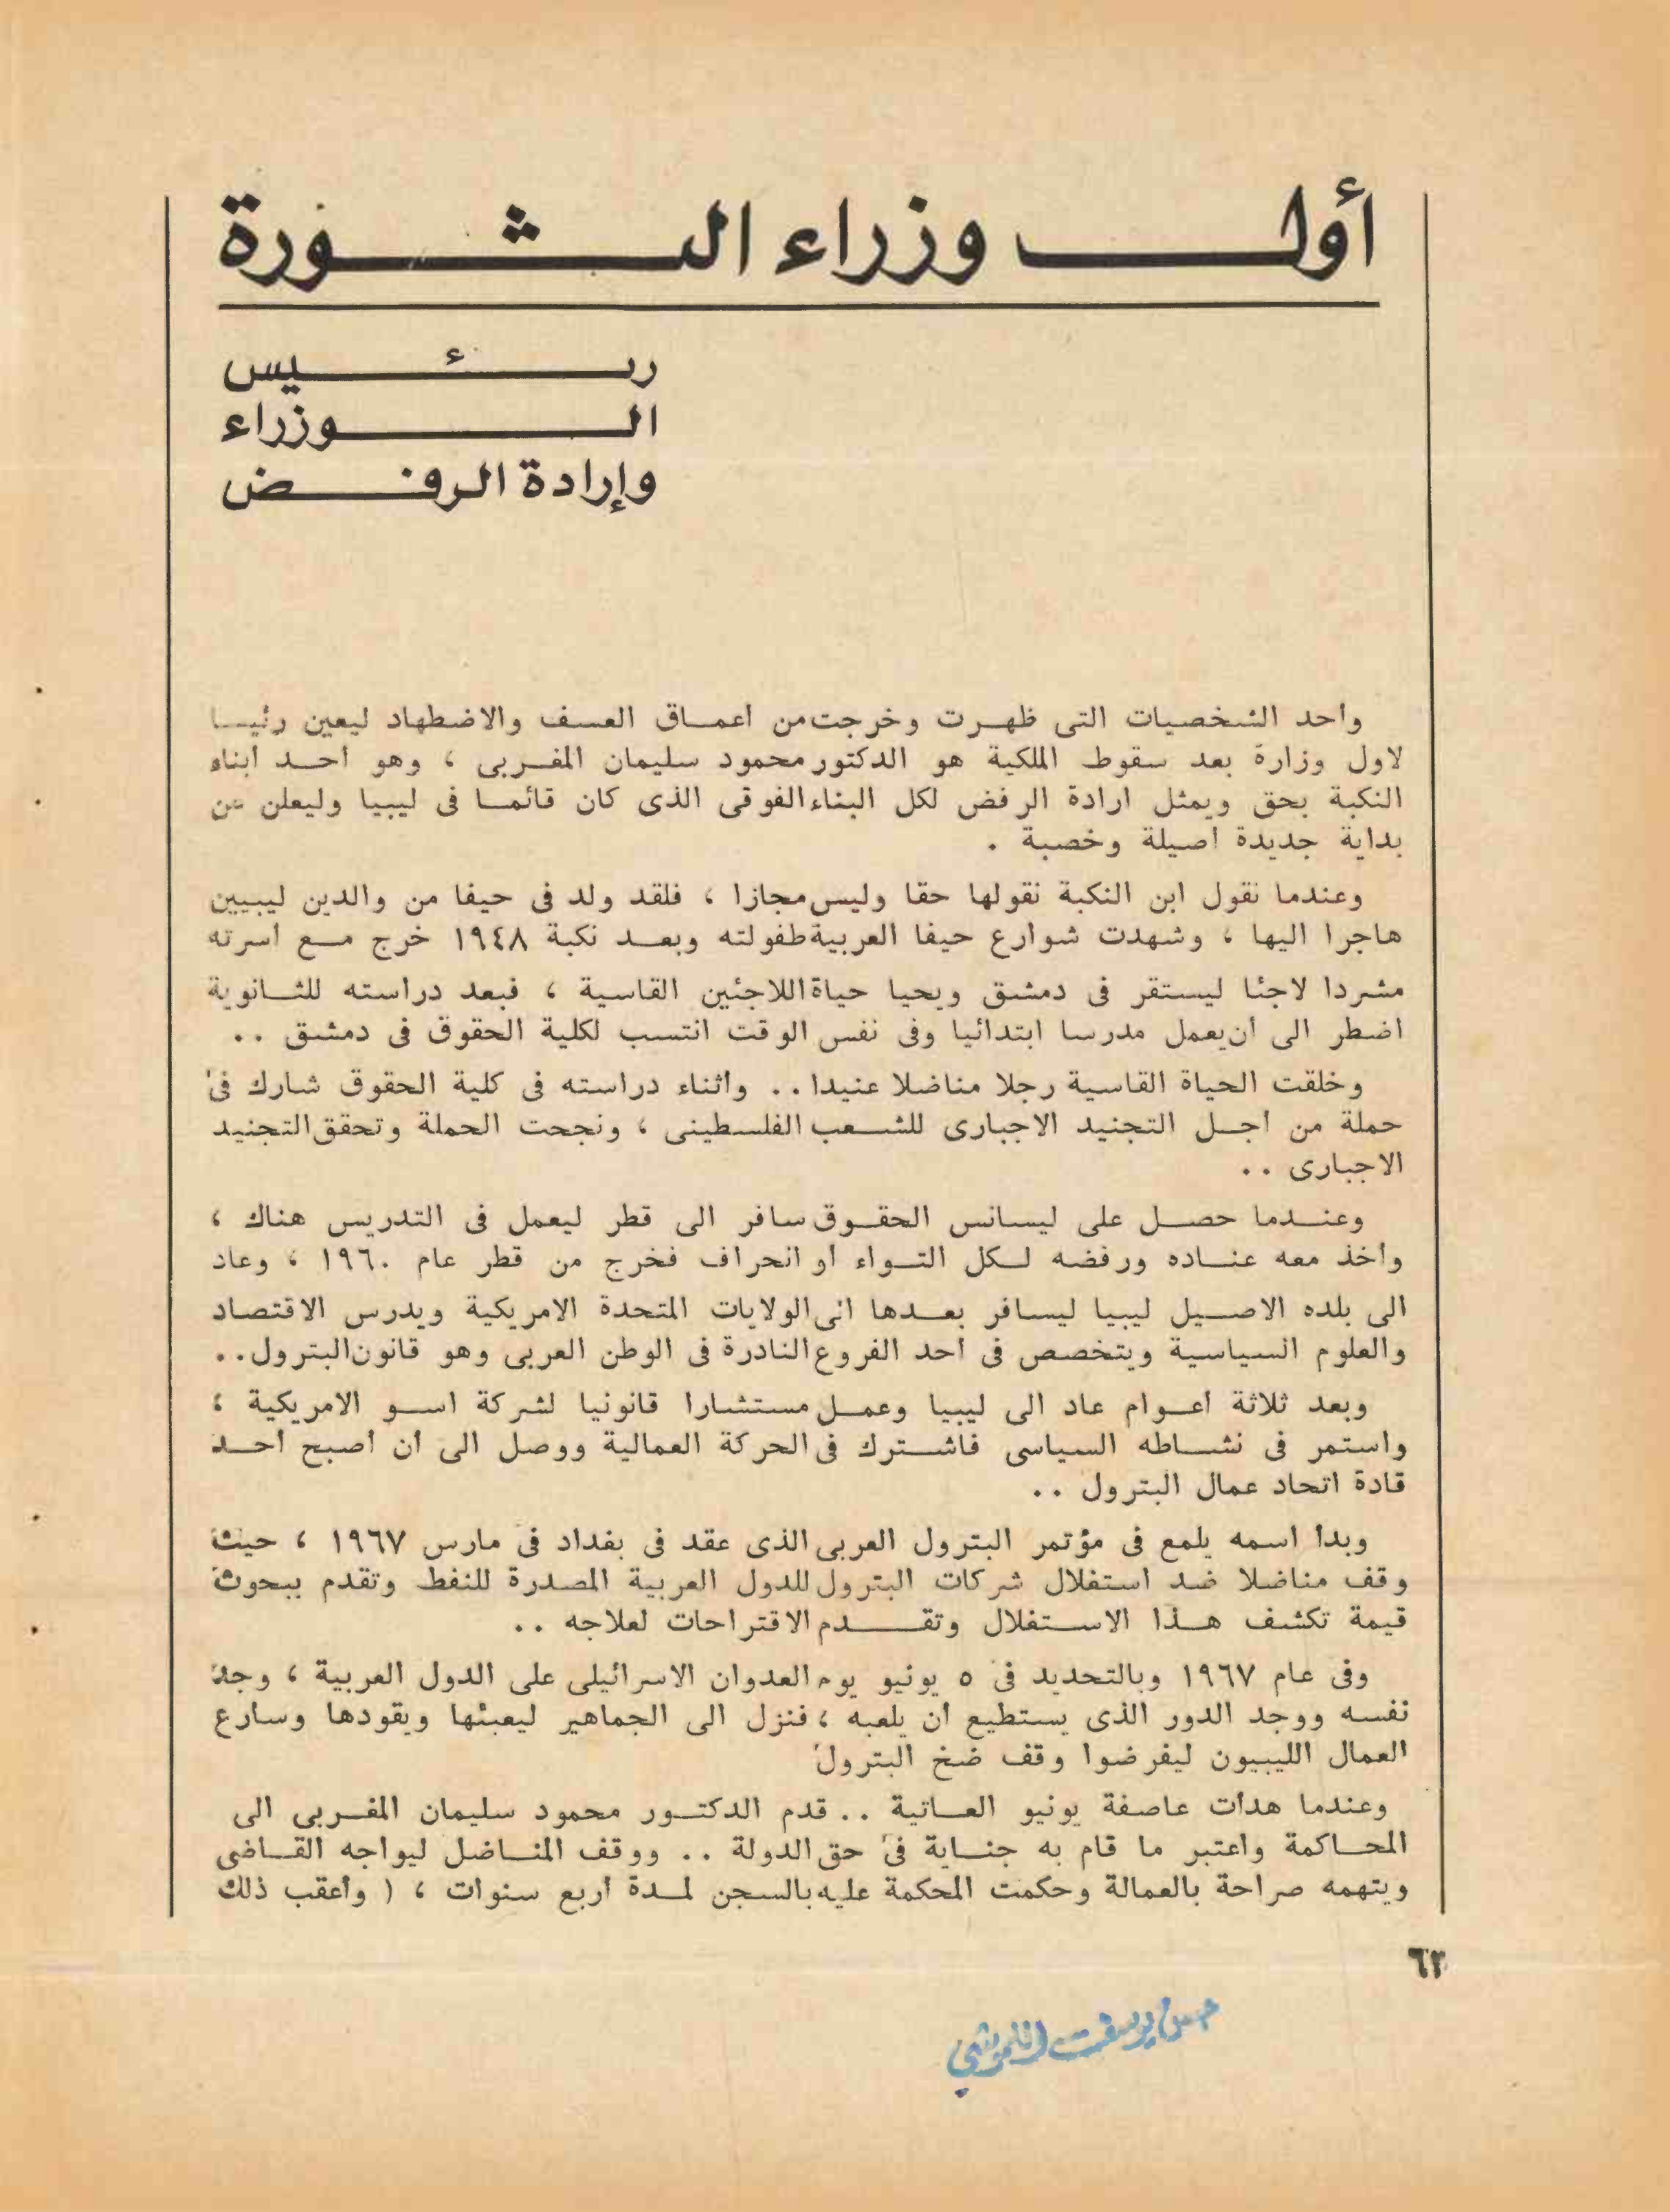 أول وزراء الثورة
رئيس
الوزراء
وإرادة الرفض
وأحد الشخصيات التى ظهرت وخرجت من أعماق العسف والاضطهاد ليعين رئيسا
لاول وزارة بعد سقوط الملكية هو الدكتور محمود سليمان المغربى ، وهو أحد أبناء
النكبة بحق ويمثل ارادة الرفض لكل البناء الفوقى الذى كان قائما فى ليبيا وليعلن عن
بداية جديدة أصيلة وخصبة .
وعندما نقول ابن النكبة نقولها حقا وليس مجازا ، فلقد ولد فى حيفا من والدين ليبيين
هاجرا اليها ، وشهدت شوارع حيفا العربية طفولته وبعد نكبة ١٩٤٨ خرج مع أسرته
مشردا لاجئا ليستقر فى دمشق ويحيا حياة اللاجئين القاسية ، فبعد دراسته للثانوية
اضطر الى أن يعمل مدرسا ابتدائيا وفى نفس الوقت انتسب لكلية الحقوق فى دمشق ..
وخلقت الحياة القاسية رجلا مناضلا عنيدا .. وأثناء دراسته فى كلية الحقوق شارك فى
حملة من أجل التجنيد الاجبارى للشعب الفلسطينى ، ونجحت الحملة وتحقق التجنيد
الاجبارى ..
وعندما حصل على ليسانس الحقوق سافر الى قطر ليعمل فى التدريس هناك ،
وأخذ معه عناده ورفضه لكل التواء أو انحراف فخرج من قطر عام ١٩٦٠ ، وعاد
الى بلده الاصيل ليبيا ليسافر بعدها الى الولايات المتحدة الامريكية ويدرس الاقتصاد
والعلوم السياسية ويتخصص فى أحد الفروع النادرة فى الوطن العربى وهو قانون البترول ..
وبعد ثلاثة أعوام عاد الى ليبيا وعمل مستشارا قانونيا لشركة اسو الامريكية ،
واستمر فى نشاطه السياسى فاشترك فى الحركة العمالية ووصل الى أن أصبح أحد
قادة اتحاد عمال البترول ..
وبدأ اسمه يلمع فى مؤتمر البترول العربى الذى عقد فى بغداد فى مارس ١٩٦٧ ، حيث
وقف مناضلا ضد استغلال شركات البترول للدول العربية المصدرة للنفط وتقدم ببحوث
قيمة تكشف هذا الاستغلال وتقدم الاقتراحات لعلاجه ..
وفى عام ١٩٦٧ وبالتحديد فى ٥ يونيو يوم العدوان الاسرائيلى على الدول العربية ، وجد
نفسه ووجد الدور الذى يستطيع أن يلعبه ، فنزل الى الجماهير ليعبئها ويقودها وسارع
العمال الليبيون ليفرضوا وقف ضخ البترول
وعندما هدأت عاصفة يونيو العاتية .. قدم الدكتور محمود سليمان المغربى الى
المحاكمة واعتبر ما قام به جناية فى حق الدولة .. ووقف المناضل ليواجه القاضى
ويتهمه صراحة بالعمالة وحكمت المحكمة عليه بالسجن لمدة أربع سنوات ، ( وأعقب ذلك
٦٢
يوسف